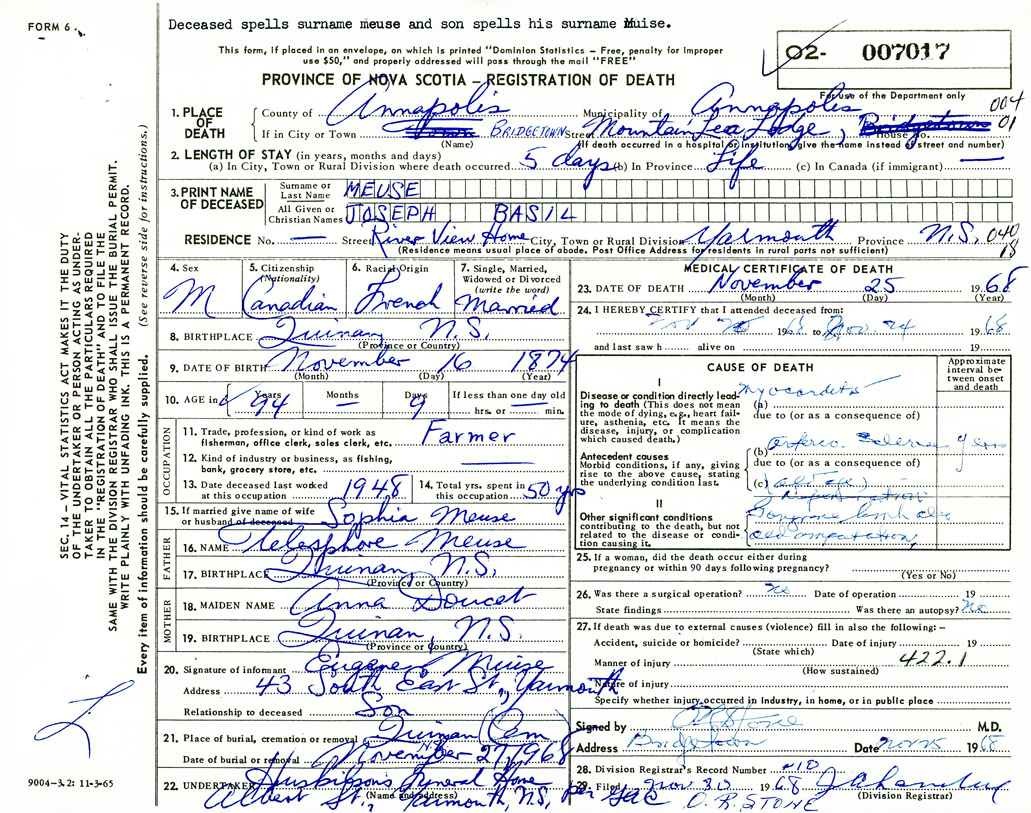 FORM 6
Deceased spells surname meuse and son spells his surname Muise.
This form, if placed in an envelope, on which is printed "Dominion Statistics – Free, penalty for improper
use $50," and properly addressed will pass through the mail "FREE"
02- 007017
PROVINCE OF NOVA SCOTIA – REGISTRATION OF DEATH
For use of the Department only
004
01
1. PLACE OF DEATH
County of Annapolis Municipality of Annapolis
If in City or Town BRIDGETOWN Street Mountain Lea Lodge, Bridgetown House No.
(Name) (If death occurred in a hospital or institution, give the name instead of street and number)
2. LENGTH OF STAY (in years, months and days)
(a) In City, Town or Rural Division where death occurred 5 days (b) In Province Life (c) In Canada (if immigrant) —
3. PRINT NAME OF DECEASED
Surname or Last Name MEUSE
All Given or Christian Names JOSEPH BASIL
RESIDENCE No. — Street River View Home City, Town or Rural Division Yarmouth Province N.S.
040
18
(Residence means usual place of abode. Post Office Address for residents in rural parts not sufficient)
4. Sex M
5. Citizenship (Nationality) Canadian
6. Racial Origin French
7. Single, Married, Widowed or Divorced (write the word) Married
8. BIRTHPLACE Quinan N.S.
(Province or Country)
9. DATE OF BIRTH November 16 1874
(Month) (Day) (Year)
10. AGE in Years 94 Months — Days 9 If less than one day old — hrs. or min.
OCCUPATION
11. Trade, profession, or kind of work as fisherman, office clerk, sales clerk, etc. Farmer
12. Kind of industry or business, as fishing, bank, grocery store, etc. —
13. Date deceased last worked at this occupation 1948
14. Total yrs. spent in this occupation 50 yrs
15. If married give name of wife or husband of deceased Sophia Meuse
FATHER
16. NAME Telesphore Meuse
17. BIRTHPLACE Quinan N.S.
(Province or Country)
MOTHER
18. MAIDEN NAME Anna Doucet
19. BIRTHPLACE Quinan, N.S.
(Province or Country)
20. Signature of informant Eugene Muise
Address 43 South East St., Yarmouth
Relationship to deceased Son
21. Place of burial, cremation or removal Quinan Cem
Date of burial or removal November 27, 1968
22. UNDERTAKER Funeral Home
(Name and address)
Albert St., Yarmouth, N.S.
MEDICAL CERTIFICATE OF DEATH
23. DATE OF DEATH November 25 1968
(Month) (Day) (Year)
24. I HEREBY CERTIFY that I attended deceased from:
Nov 20 1968 to Nov. 24 1968
and last saw h alive on 19
CAUSE OF DEATH
Approximate interval between onset and death
I
Disease or condition directly leading to death (This does not mean the mode of dying, e.g., heart failure, asthenia, etc. It means the disease, injury, or complication which caused death.)
(a) Myocarditis
due to (or as a consequence of)
Antecedent causes
Morbid conditions, if any, giving rise to the above cause, stating the underlying condition last.
(b)
due to (or as a consequence of)
(c)
II
Other significant conditions contributing to the death, but not related to the disease or condition causing it.
25. If a woman, did the death occur either during
pregnancy or within 90 days following pregnancy?
(Yes or No)
26. Was there a surgical operation? No Date of operation 19
State findings Was there an autopsy? No
27. If death was due to external causes (violence) fill in also the following: –
Accident, suicide or homicide? Date of injury 19
(State which)
Manner of injury 422.1
(How sustained)
Nature of injury
Specify whether injury occurred in Industry, in home, or in public place
Signed by M.D.
Address Bridgetown Date Nov 25 1968
28. Division Registrar's Record Number
29. Filed Nov 30 1968
(Division Registrar)
O.R. STONE
SEC. 14 – VITAL STATISTICS ACT MAKES IT THE DUTY
OF THE UNDERTAKER OR PERSON ACTING AS UNDER-
TAKER TO OBTAIN ALL THE PARTICULARS REQUIRED
IN THE "REGISTRATION OF DEATH" AND TO FILE THE
SAME WITH THE DIVISION REGISTRAR WHO SHALL ISSUE THE BURIAL PERMIT.
WRITE PLAINLY WITH UNFADING INK. THIS IS A PERMANENT RECORD.
Every item of information should be carefully supplied. (See reverse side for instructions.)
9004-3.2: 11-3-65